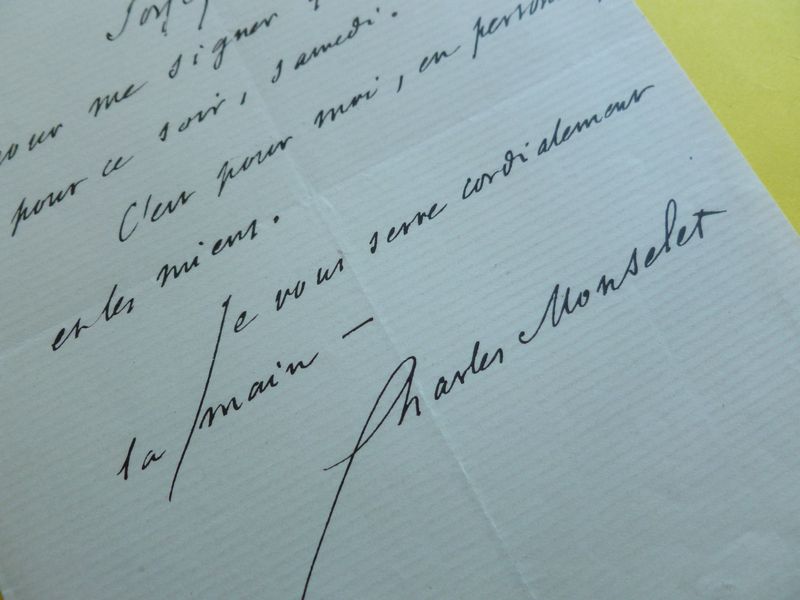 pour me signer
pour ce soir, samedi.
C'est pour moi, en personne
et les miens.
Je vous serre cordialement
la main —
Charles Monselet